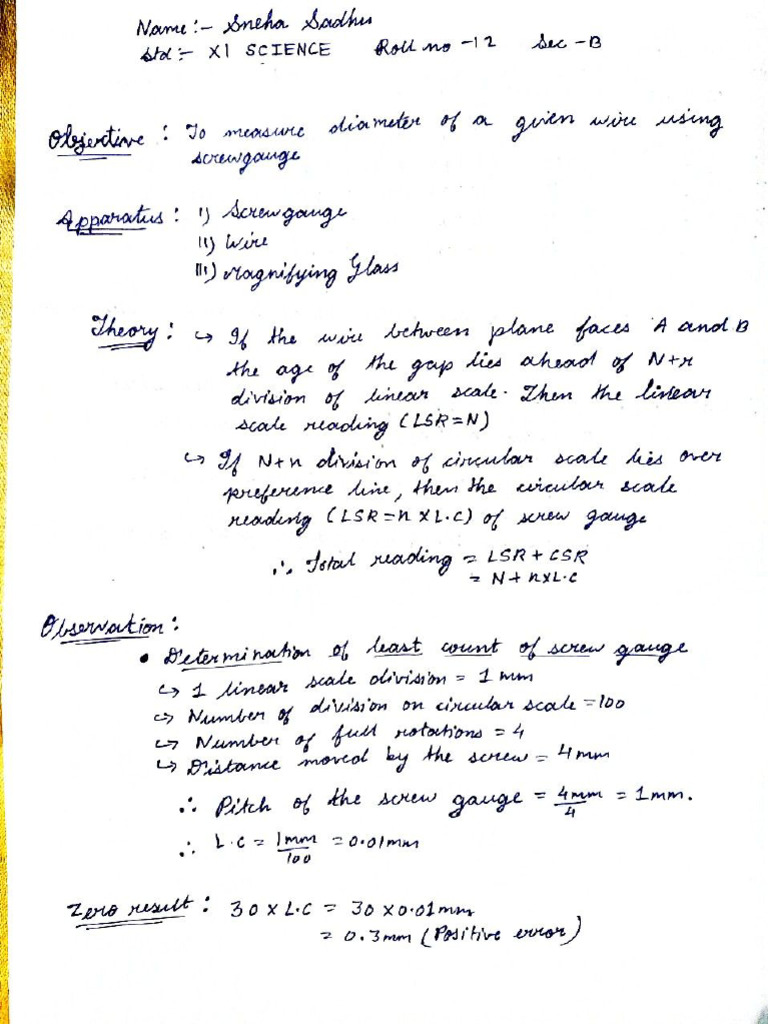 Name :- Sneha Sadhu
Std :- XI SCIENCE Roll no -12 Sec -B
Objective : To measure diameter of a given wire using
screwgauge
Apparatus : I) Screwgauge
II) Wire
III) Magnifying Glass
Theory : ↳ If the wire between plane faces A and B
the age of the gap lies ahead of N+n
division of linear scale. Then the linear
scale reading (LSR=N)
↳ If N+n division of circular scale lies over
preference line, then the circular scale
reading (LSR=n x L.C) of screw gauge
∴ Total reading = LSR + CSR
= N + nxL.C
Observation :
• Determination of least count of screw gauge
↳ 1 linear scale division = 1 mm
↳ Number of division on circular scale =100
↳ Number of full rotations = 4
↳ Distance moved by the screw = 4mm
∴ Pitch of the screw gauge = 4mm/4 = 1mm.
∴ L.C = 1mm/100 = 0.01mm
Zero result : 30 x L.C = 30 x0.01mm
= 0.3mm (Positive error)